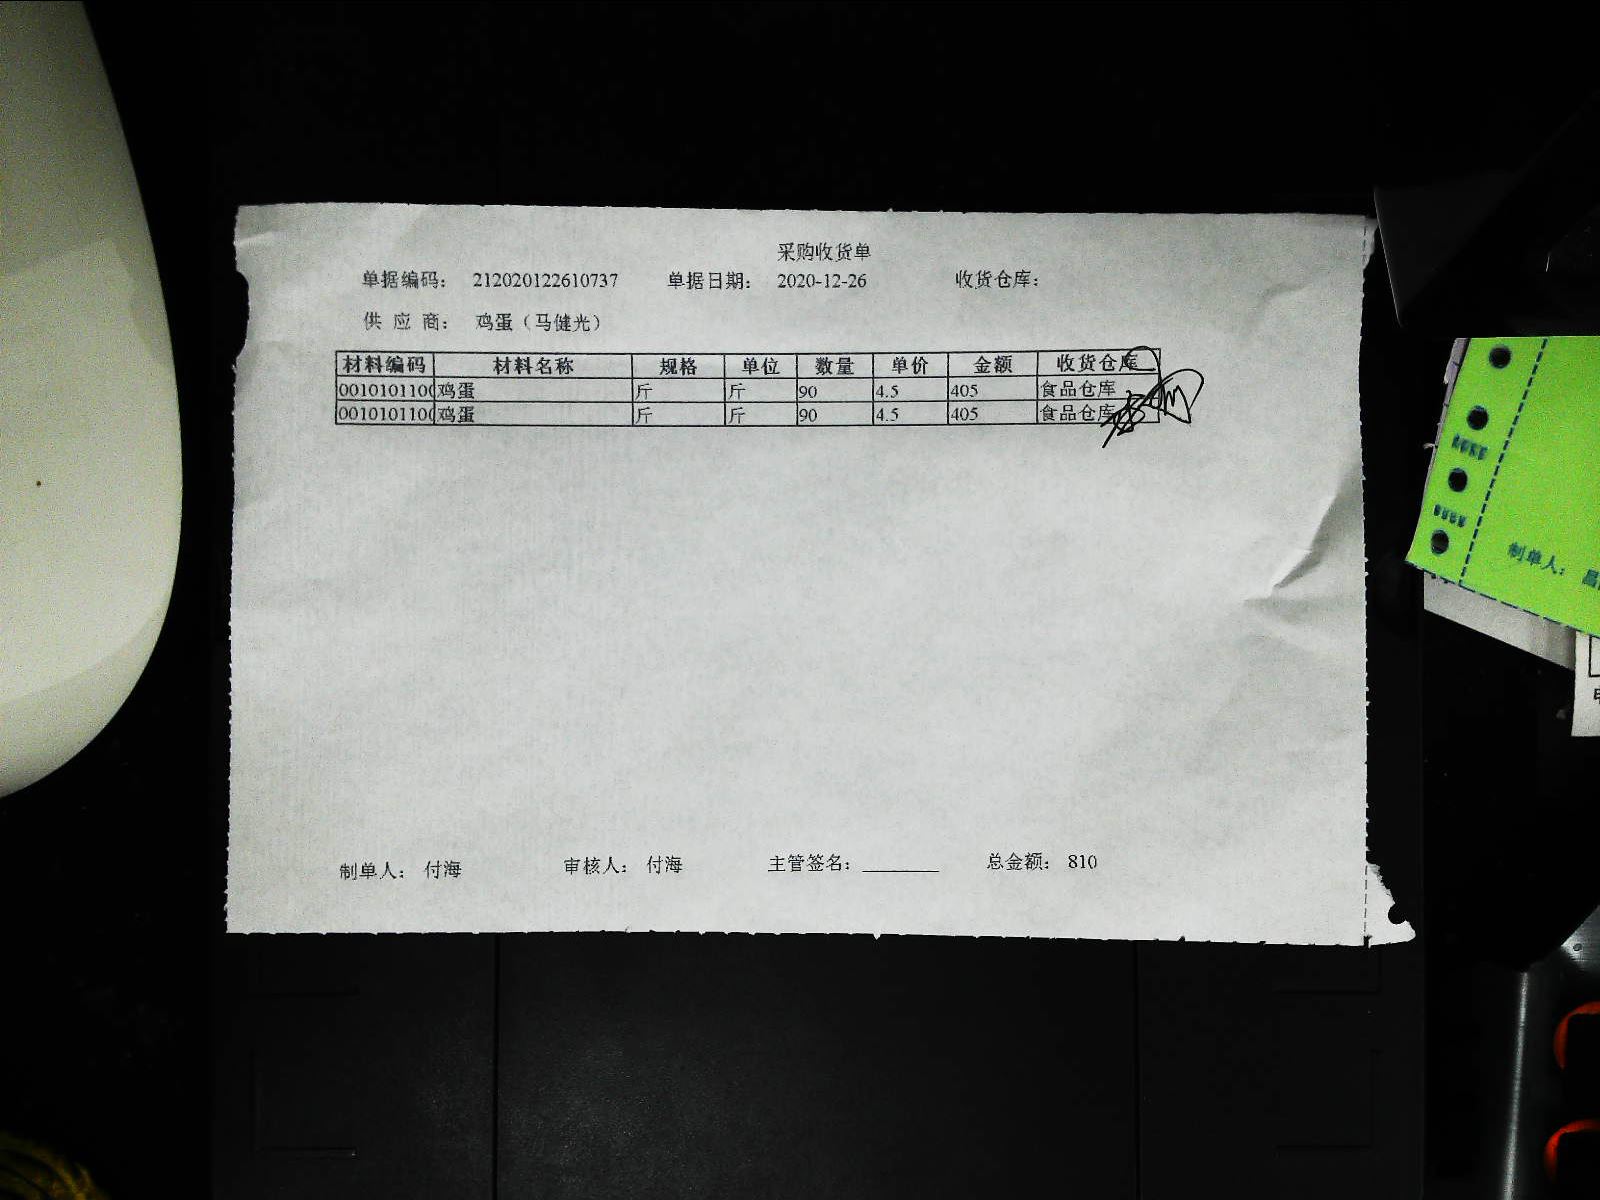 采购收货单
单据编码： 212020122610737 单据日期： 2020-12-26 收货仓库：
供 应 商： 鸡蛋（马健光）
材料编码 材料名称 规格 单位 数量 单价 金额 收货仓库
0010101100 鸡蛋 斤 斤 90 4.5 405 食品仓库
0010101100 鸡蛋 斤 斤 90 4.5 405 食品仓库
制单人： 付海 审核人： 付海 主管签名：________ 总金额： 810
制单人：